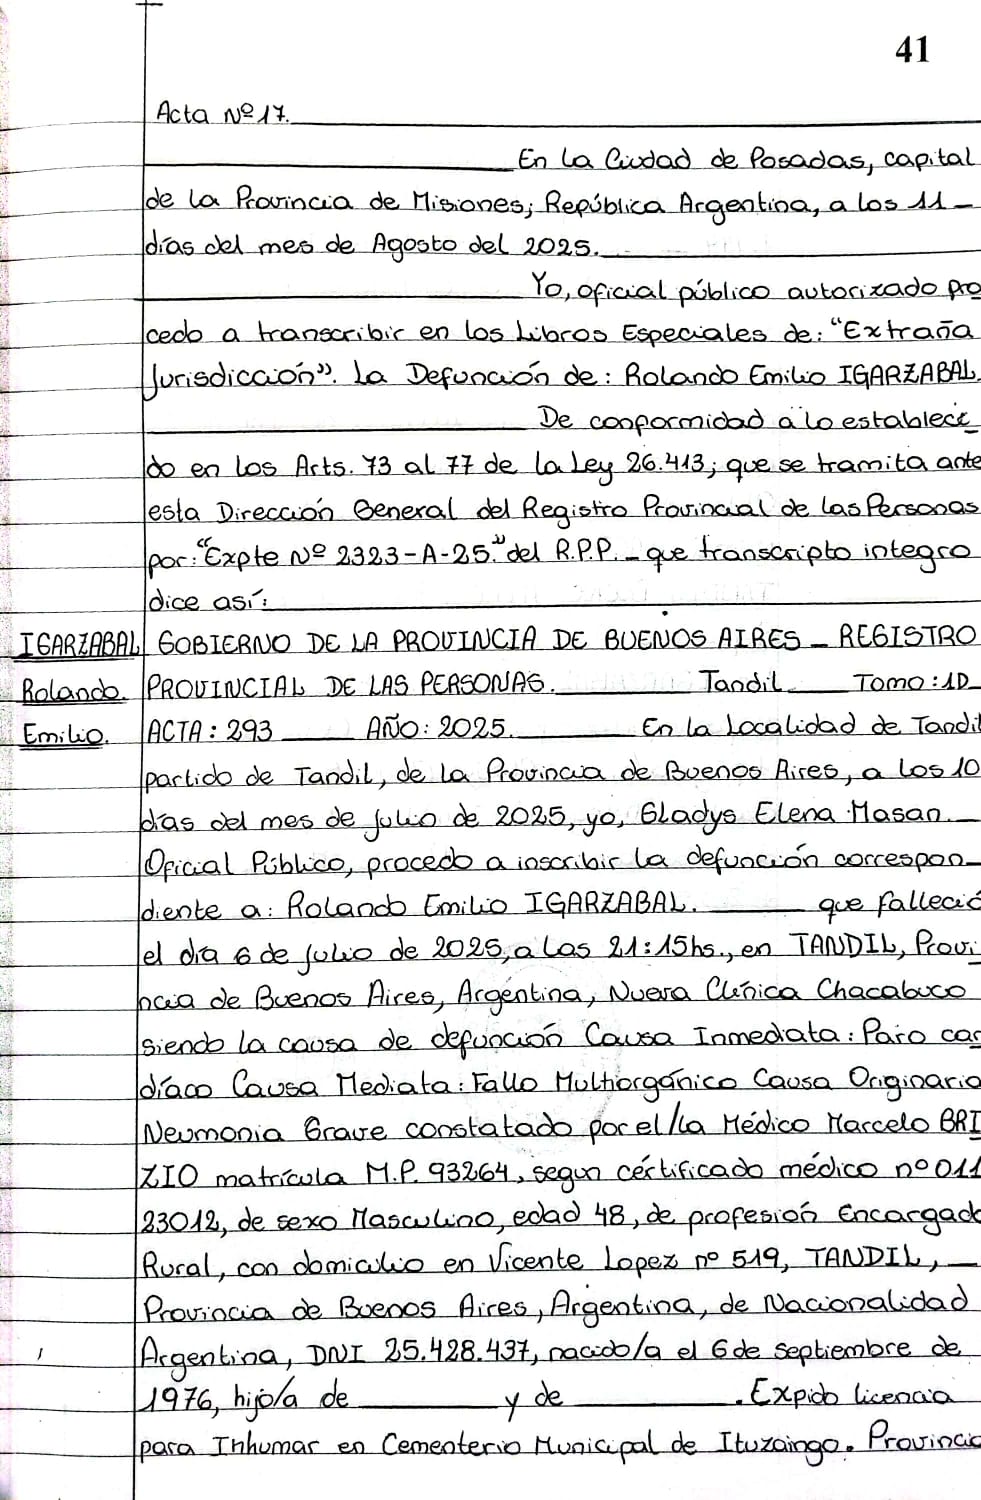 41
Acta Nº 17.
En la Ciudad de Posadas, capital
de la Provincia de Misiones; República Argentina, a los 11-
días del mes de Agosto del 2025.
Yo, oficial público autorizado pro
cedo a transcribir en los Libros Especiales de: "Extraña
Jurisdicción". La Defunción de: Rolando Emilio IGARZABAL.
De conformidad a lo estableci
do en los Arts. 73 al 77 de la Ley 26.413; que se tramita ante
esta Dirección General del Registro Provincial de las Personas
por: "Expte Nº 2323-A-25." del R.P.P. - que transcripto integro
dice así:
IGARZABAL
Rolando
Emilio.
GOBIERNO DE LA PROVINCIA DE BUENOS AIRES - REGISTRO
PROVINCIAL DE LAS PERSONAS. Tandil Tomo: 1D
ACTA: 293 AÑO: 2025. En la Localidad de Tandil
partido de Tandil, de la Provincia de Buenos Aires, a los 10
días del mes de julio de 2025, yo, Gladys Elena Masan
Oficial Público, procedo a inscribir la defunción correspon-
diente a: Rolando Emilio IGARZABAL. que falleció
el día 6 de julio de 2025, a las 21:15hs., en TANDIL, Provi
ncia de Buenos Aires, Argentina, Nueva Clínica Chacabuco
siendo la causa de defunción Causa Inmediata: Paro car
díaco Causa Mediata: Fallo Multiorgánico Causa Originaria
Neumonia Grave constatado por el/la Médico Marcelo BRI
ZIO matrícula M.P. 93264, segun certificado médico nº 011
23012, de sexo Masculino, edad 48, de profesión Encargado
Rural, con domicilio en Vicente Lopez nº 519, TANDIL,
Provincia de Buenos Aires, Argentina, de Nacionalidad
Argentina, DNI 25.428.437, nacido/a el 6 de septiembre de
1976, hijo/a de y de . Expido licencia
para Inhumar en Cementerio Municipal de Ituzaingo. Provincia